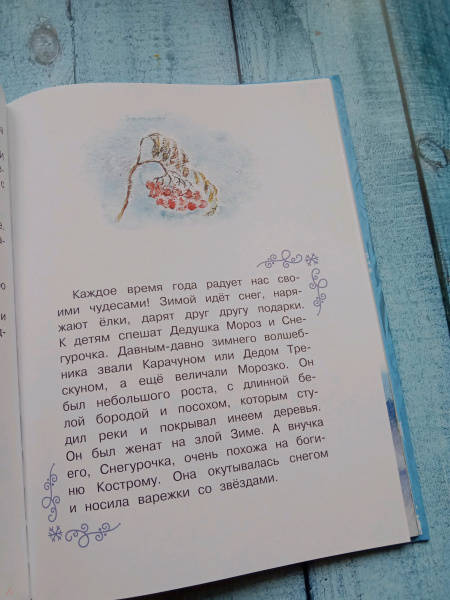 Каждое время года радует нас сво-
ими чудесами! Зимой идёт снег, наря-
жают ёлки, дарят друг другу подарки.
К детям спешат Дедушка Мороз и Сне-
гурочка. Давным-давно зимнего волшеб-
ника звали Карачуном или Дедом Тре-
скуном, а ещё величали Морозко. Он
был небольшого роста, с длинной бе-
лой бородой и посохом, которым сту-
дил реки и покрывал инеем деревья.
Он был женат на злой Зиме. А внучка
его, Снегурочка, очень похожа на боги-
ню Кострому. Она окутывалась снегом
и носила варежки со звёздами.